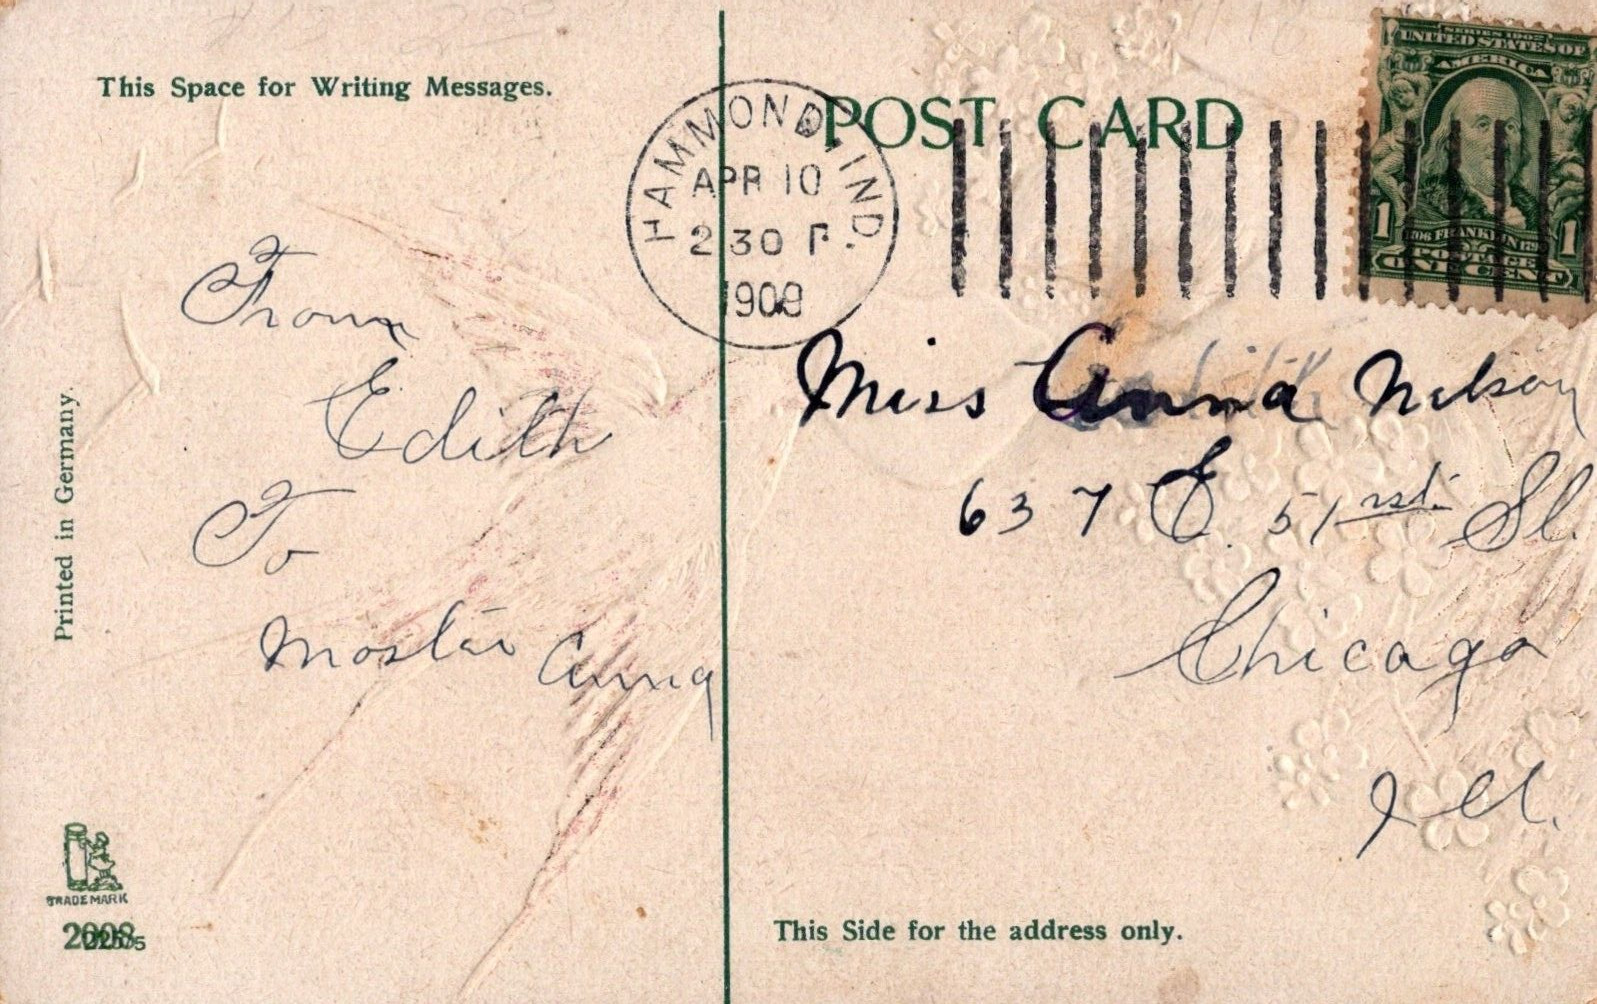 This Space for Writing Messages.
POST CARD
HAMMOND, IND.
APR 10
2 30 P.
1908
SERIES 1902
UNITED STATES OF
AMERICA
1 FRANKLIN 1
POSTAGE
ONE CENT
From
Edith
To
Anna
Miss Anna Nelson
637 E. 51rst. St.
Chicago
Ill.
Printed in Germany.
TRADE MARK
This Side for the address only.